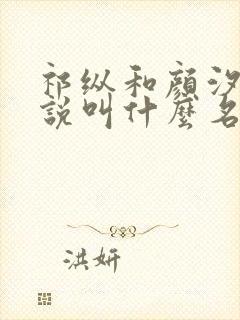 祁纵和顏汐
說叫什麼名
洪妍